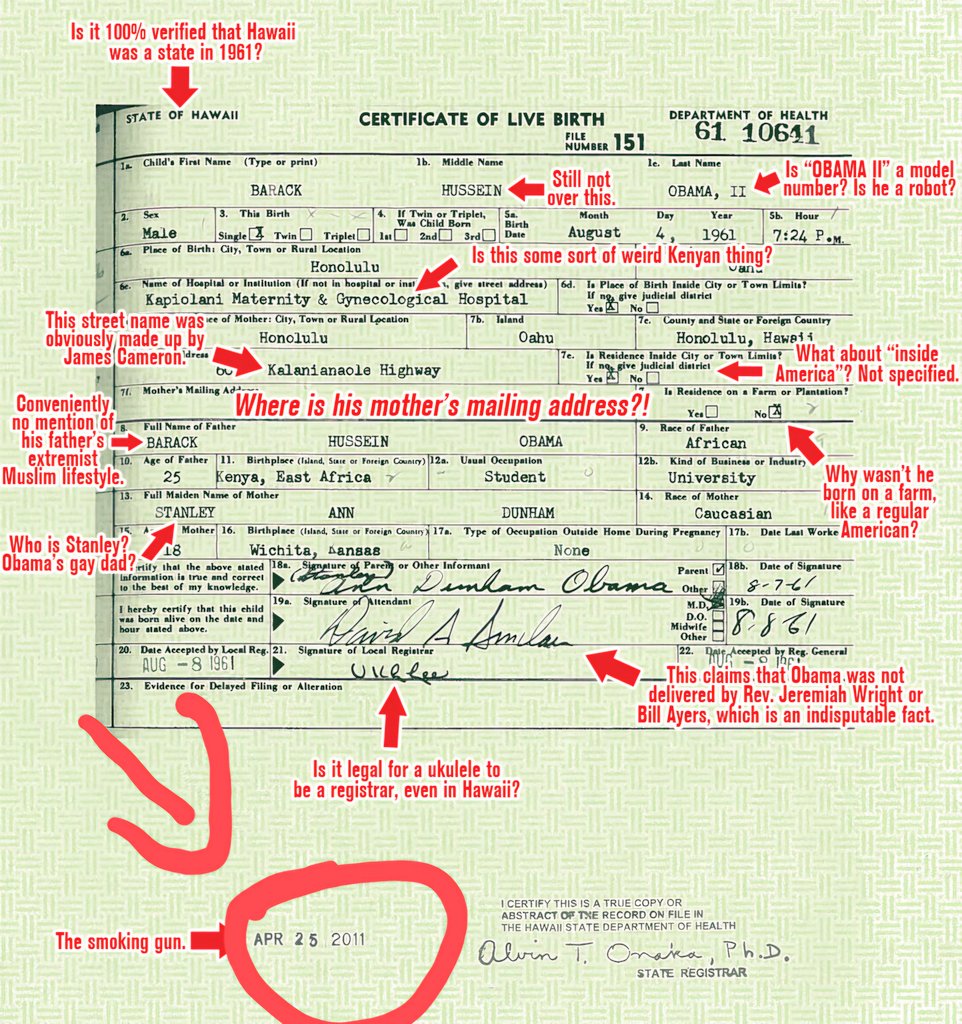 Is it 100% verified that Hawaii
was a state in 1961?
STATE OF HAWAII
CERTIFICATE OF LIVE BIRTH
DEPARTMENT OF HEALTH
FILE
NUMBER 151
61 10641
1a. Child's First Name (Type or print)
1b. Middle Name
1c. Last Name
BARACK
HUSSEIN
OBAMA, II
Still not
over this.
Is “OBAMA II” a model
number? Is he a robot?
2. Sex
Male
3. This Birth
Single X Twin Triplet
4. If Twin or Triplet,
Was Child Born
1st 2nd 3rd
5a.
Birth
Date
Month
Day
Year
August
4,
1961
5b. Hour
7:24 P.M.
6a. Place of Birth: City, Town or Rural Location
Honolulu
Is this some sort of weird Kenyan thing?
6c. Name of Hospital or Institution (If not in hospital or give street address)
Kapiolani Maternity & Gynecological Hospital
6d. Is Place of Birth Inside City or Town Limits?
If no, give judicial district
Yes X No
This street name was
obviously made up by
James Cameron.
of Mother: City, Town or Rural Location
Honolulu
7b. Island
Oahu
7c. County and State or Foreign Country
Honolulu, Hawaii
Kalanianaole Highway
7e. Is Residence Inside City or Town Limits?
If no, give judicial district
Yes X No
What about “inside
America”? Not specified.
7f. Mother's Mailing
Where is his mother’s mailing address?!
Is Residence on a Farm or Plantation?
Yes No X
Conveniently,
no mention of
his father’s
extremist
Muslim lifestyle.
8. Full Name of Father
BARACK
HUSSEIN
OBAMA
9. Race of Father
African
10. Age of Father
25
11. Birthplace (Island, State or Foreign Country)
Kenya, East Africa
12a. Usual Occupation
Student
12b. Kind of Business or Industry
University
Why wasn’t he
born on a farm,
like a regular
American?
13. Full Maiden Name of Mother
STANLEY
ANN
DUNHAM
14. Race of Mother
Caucasian
Who is Stanley?
Obama’s gay dad?
15. Mother
18
16. Birthplace (Island, State or Foreign Country)
Wichita, Kansas
17a. Type of Occupation Outside Home During Pregnancy
None
17b. Date Last Worke
certify that the above stated
information is true and correct
to the best of my knowledge.
18a. Signature of Parent or Other Informant
(Stanley) Ann Dunham Obama
Parent
Other
18b. Date of Signature
8-7-61
I hereby certify that this child
was born alive on the date and
hour stated above.
19a. Signature of Attendant
David A Sinclair
M.D.
D.O.
Midwife
Other
19b. Date of Signature
8-8-61
20. Date Accepted by Local Reg.
AUG -8 1961
21. Signature of Local Registrar
UKLee
22. Date Accepted by Reg. General
AUG -8 1961
23. Evidence for Delayed Filing or Alteration
This claims that Obama was not
delivered by Rev. Jeremiah Wright or
Bill Ayers, which is an indisputable fact.
Is it legal for a ukulele to
be a registrar, even in Hawaii?
The smoking gun.
APR 25 2011
I CERTIFY THIS IS A TRUE COPY OR
ABSTRACT OF THE RECORD ON FILE IN
THE HAWAII STATE DEPARTMENT OF HEALTH
Alvin T. Onaka, Ph.D.
STATE REGISTRAR